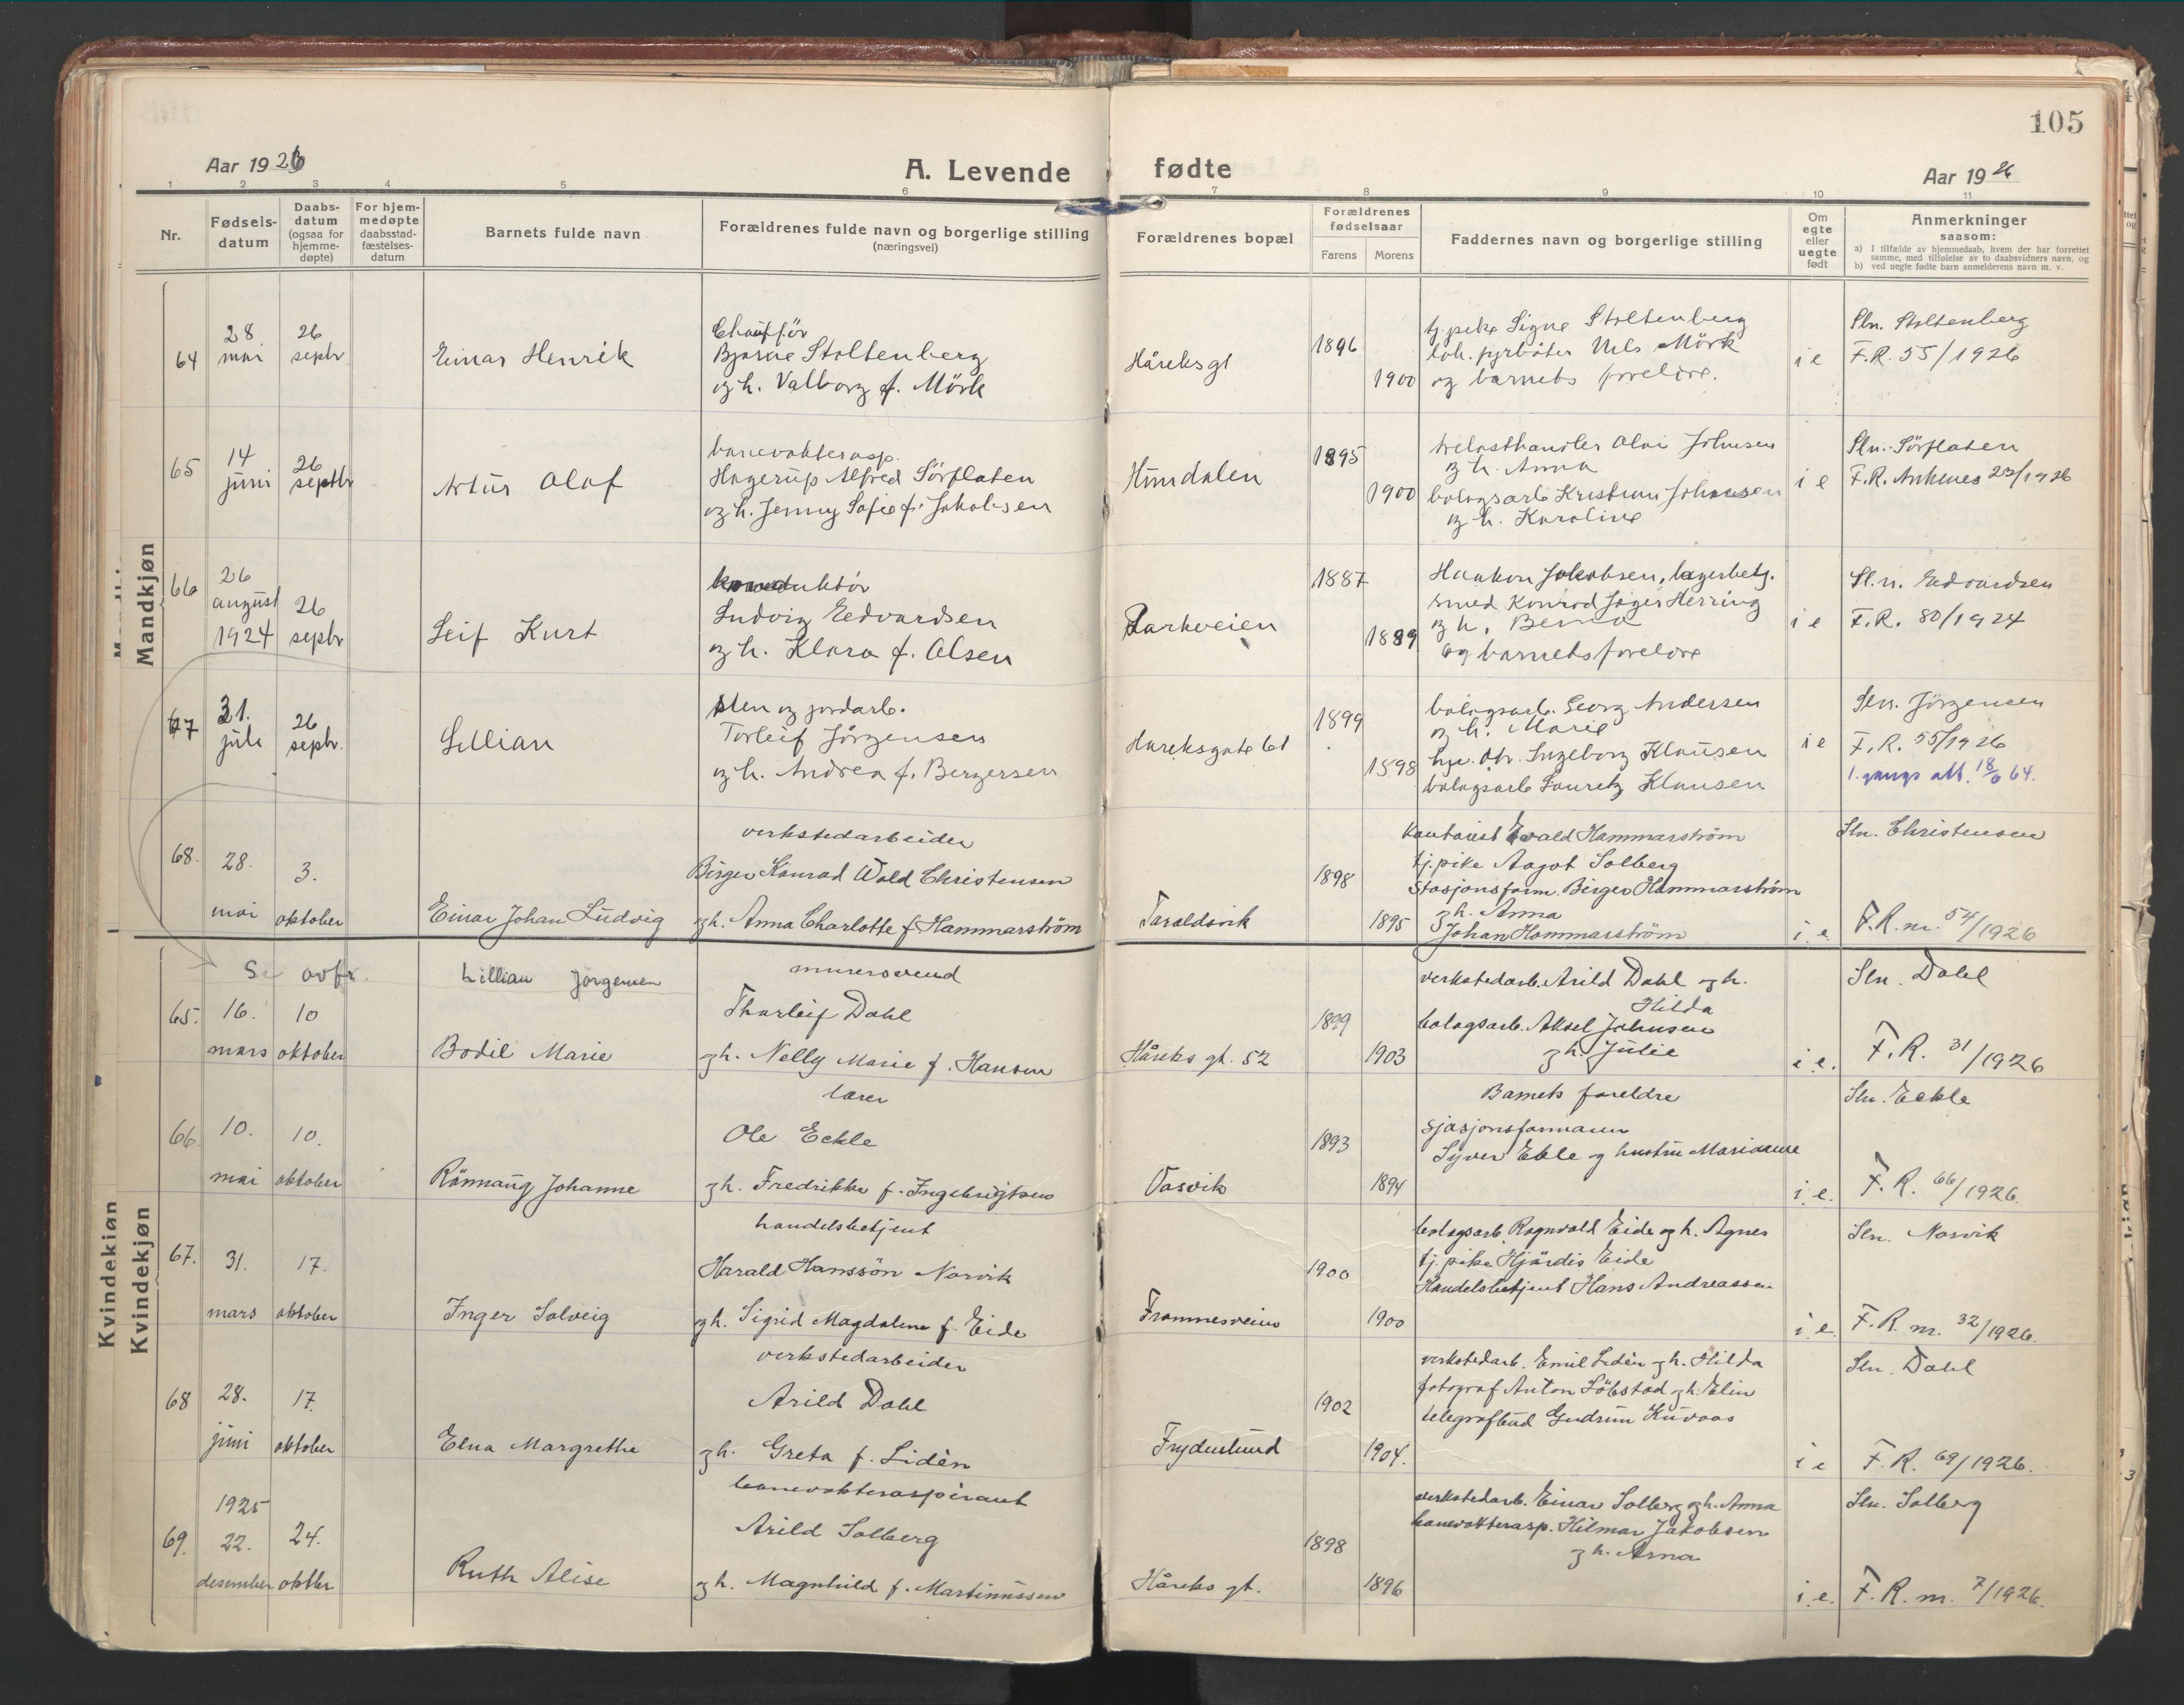 105
Aar 1926
A. Levende fødte
Aar 1926
1 2 3 4 5 6 7 8 9 10 11
Nr.
Fødsels-
datum
Daabs-
datum
(ogsaa for
hjemme-
døpte)
For hjem-
medøpte
daabsstad-
fæstelses-
datum
Barnets fulde navn
Forældrenes fulde navn og borgerlige stilling
(næringsvei)
Forældrenes bopæl
Forældrenes
fødselsaar
Farens
Morens
Faddernes navn og borgerlige stilling
Om
egte
eller
uegte
født
Anmerkninger
saasom:
a) I tilfælde av hjemmedaab, hvem der har forrettet
samme, med tilføielse av to daabsvidners navn, og
b) ved uegte fødte barn anmelderens navn m. v.
Mandkjøn
64
28.
mai
26
septr
Einar Henrik
Chauffør
Bjarne Stoltenberg
og h. Valborg f. Mörk
Håreksgt
1896
1900
tj.pike Signe Stoltenberg
lok. fyrbøter Nils Mörk
og barnets foreldre.
i e
Sln. Stoltenberg
F.R. 55/1926
65
14
juni
26
septbr
Artur Olaf
banevokterasp.
Hagerup Alfred Sörflaten
og h. Jenny Sofie f. Jakobsen
Hundalen
1895
1900
trelasthandler Olai Johnsen
og h. Anna
bologsarb Kristian Johansen
og h. Karoline
i e
Sln. Sörflaten
F.R. Ankenes 23/1926
66
26
august
1924
26
septr
Leif Kurt
konduktör
Ludvig Eedvardsen
og h. Klara f. Olsen
Parkveien
1887
1889
Haakon Jakobsen, lagerbetj.
smed Konrad Jäger Herring
og h. Berna
og barnets foreldre
i e
Sln. Eedvardsen
F.R. 80/1924
67
31.
juli
26
septr.
Lillian
Sten og jordarb.
Torleif Jörgensen
og h. Andrea f. Bergersen
Hareksgate 61
1899
1898
bologsarb. Georg Andersen
og h. Marie
Ingeborg Klausen
bologsarb Lauretz Klausen
i e
Sln. Jörgensen
F.R. 55/1926
1. gangs att. 18/6 64.
68.
28.
mai
3.
oktober
Einar Johan Ludvig
verkstedarbeider
Birger Konrad Wold Christensen
og h. Anna Charlotte f. Hammarström
Taraldsvik
1898
1895
Kontorist Evald Hammarström
tj.pike Aagot Solberg
Stasjonsform. Birger Hammarström
og h. Anna
Johan Hammarström
i. e.
Sln. Christensen
F.R. nr. 54/1926
Kvindekjøn
Se ovfr.
Lillian Jørgensen
65.
16.
mars
10
oktober
Bodil Marie
murersvend
Thorleif Dahl
og h. Nelly Marie f. Hansen
Håreks gt. 52
1899
1903
verkstedarb. Arild Dahl og h.
Hilda
bologsarb. Aksel Johnsen
og h. Julie
i. e.
Sln. Dahl
F.R. 31/1926
66.
10.
mai
10.
oktober
Rönnaug Johanne
lærer
Ole Eekle
og h. Fredrikke f. Ingebrigtsen
Vasvik
1893
1894
Barnets foreldre
Sjasjonsformann
Syver Ekle og hustru Marianne
i. e.
Sln. Eekle
F.R. 66/1926.
67.
31.
mars
17.
oktober
Inger Solveig
handelsbetjent
Harald Hanssön Narvik
og h. Sigrid Magdalene f. Eide
Framnesveien
1900
1900
bologsarb. Ragnvald Eide og h. Agnes
tj.pike Hjördis Eide
Handelsbetjent Hans Andreassen
i. e.
Sln. Narvik
F.R. nr. 32/1926.
68
28.
juni
17.
oktober
Elna Margrethe
verkstedarbeider
Arild Dahl
og h. Greta f. Lidèn
Frydenlund
1902
1904.
verkstedarb. Emil Lidèn og h. Hilda
fotograf Anton Löbstad og h. Elin
telegrafbud Gudrun Kuvaas
i e
Sln. Dahl
F.R. 69/1926.
69.
1925
22.
desember
24.
oktbr
Ruth Alise
banevokteraspirant
Arild Solberg
og h. Magnhild f. Martinussen
Håreks gt.
1898
1896
verkstedarb. Einar Solberg og h. Anna
banevokterasp. Hilmar Jakobsen
og h. Arna
i. e.
Sln. Solberg
F.R. nr. 7/1926.
Kvindekjøn